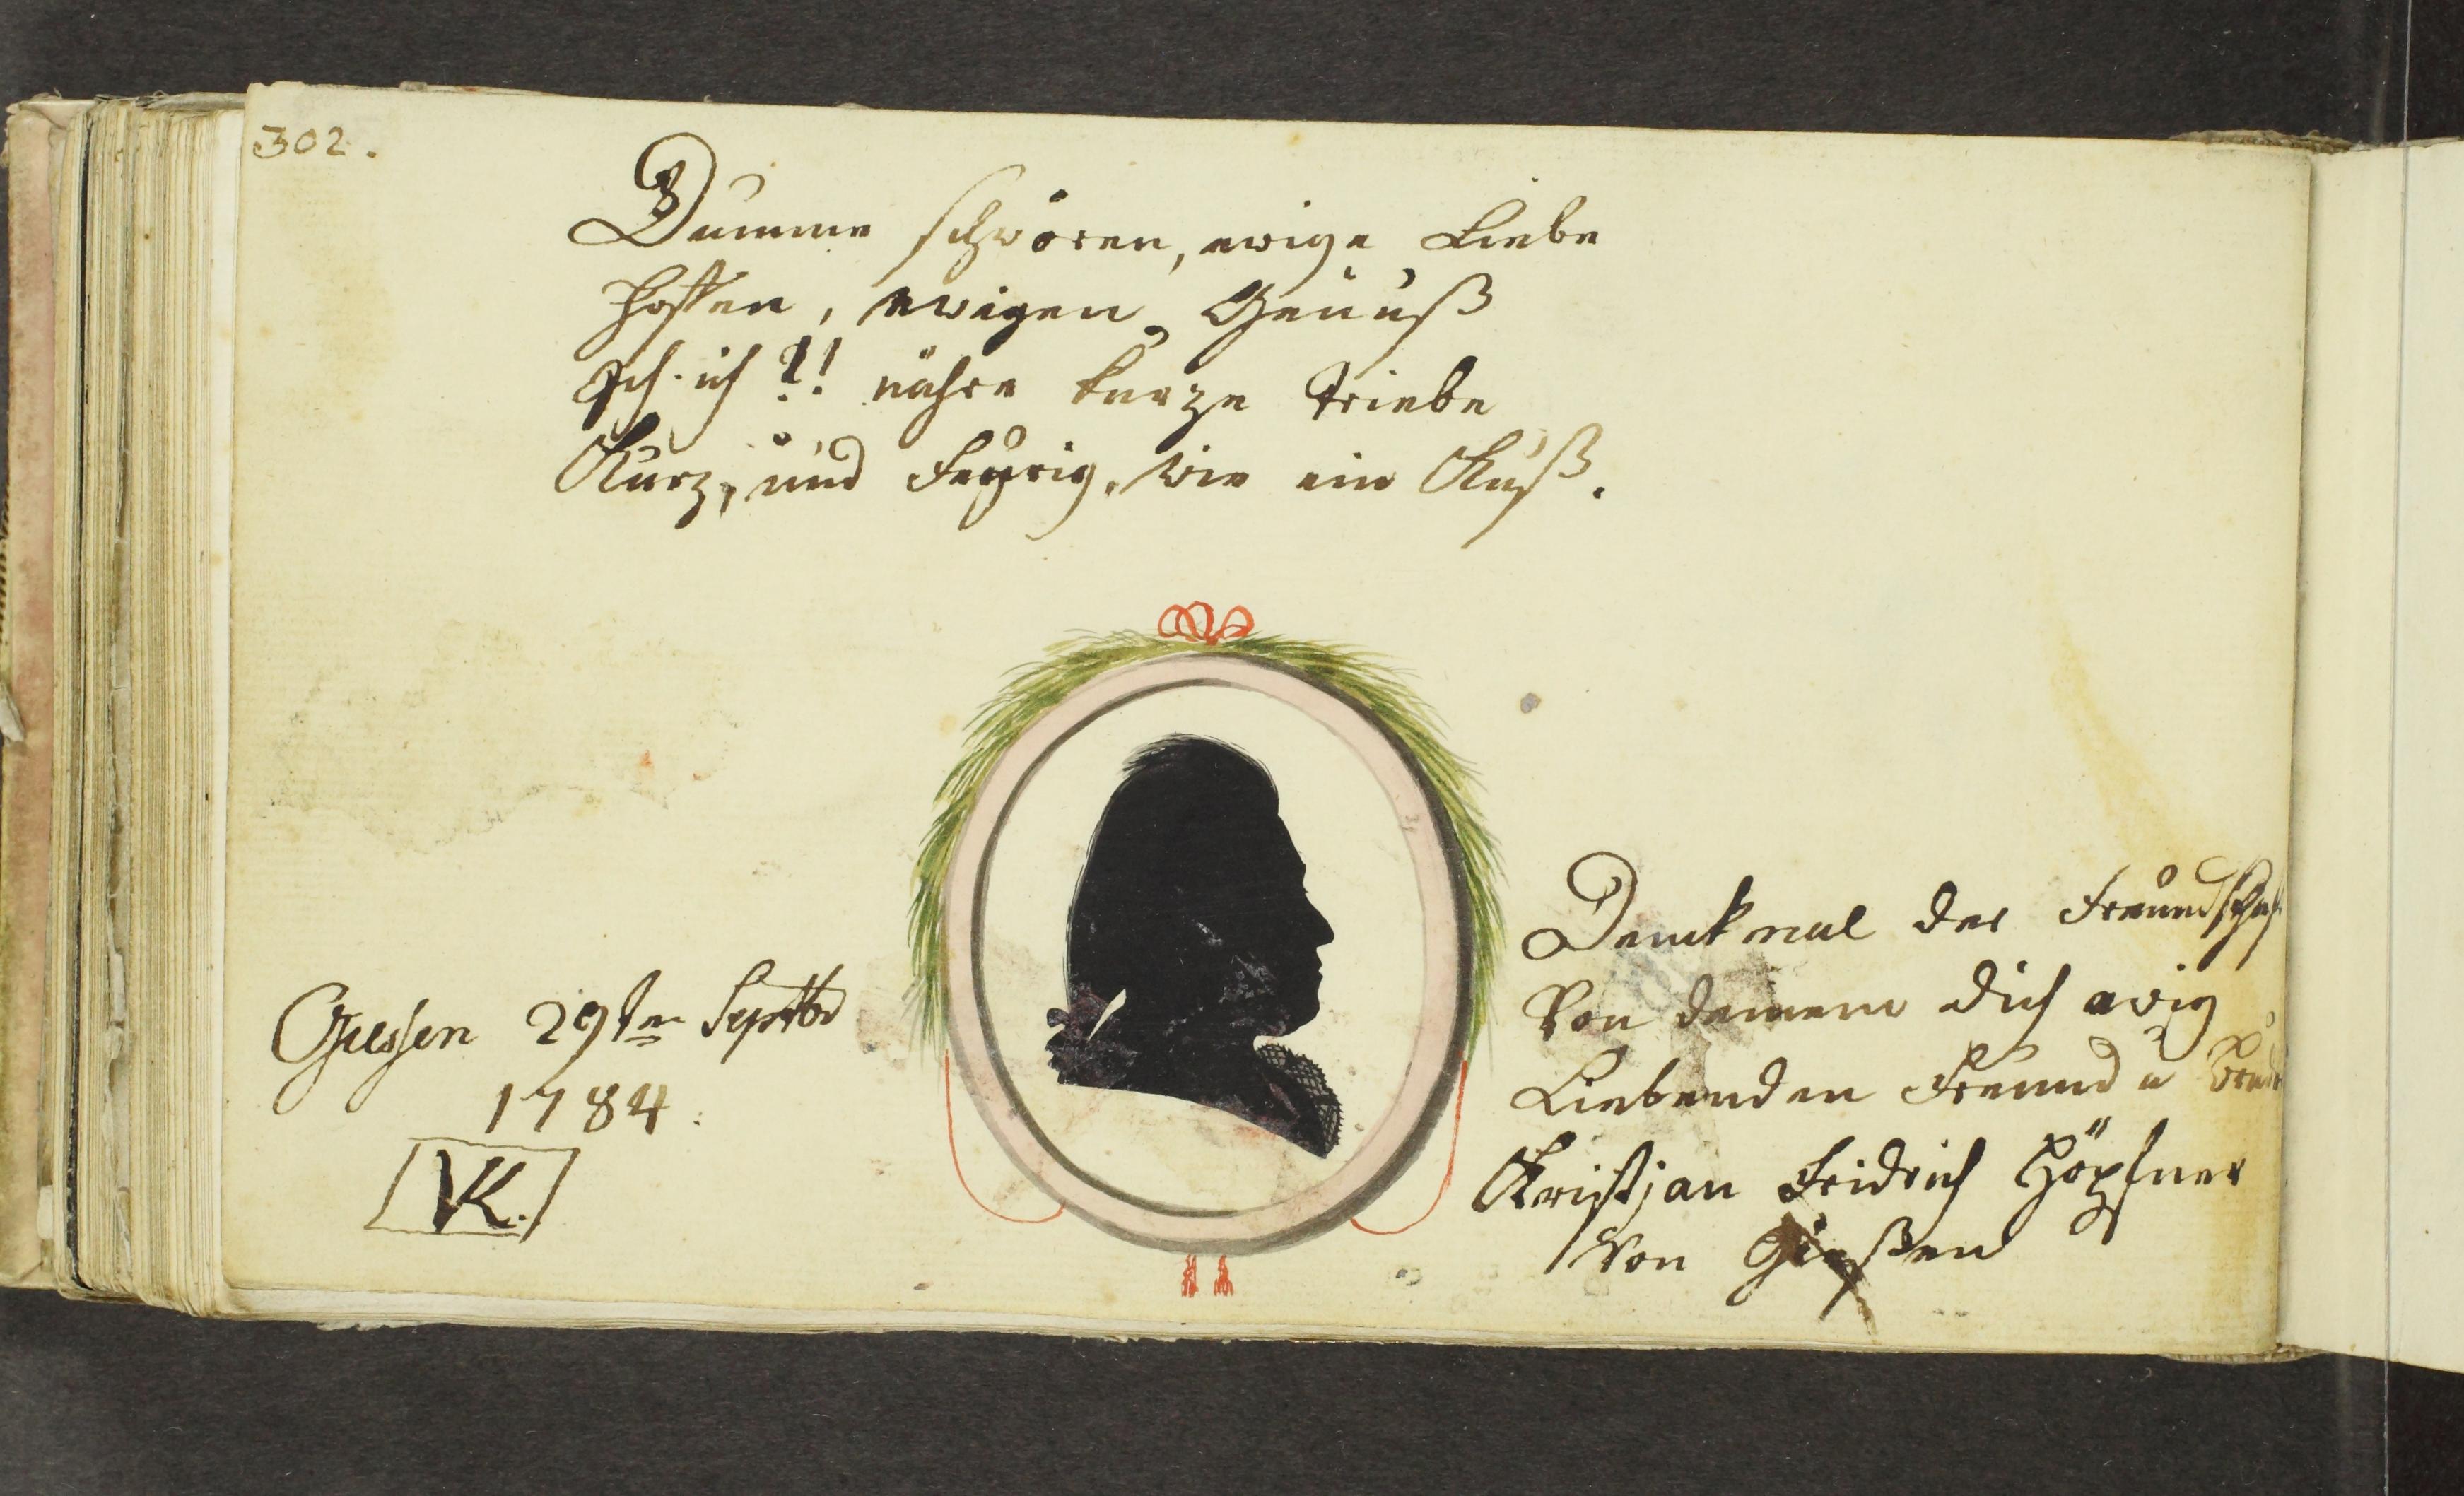 302.
Dumme schwören, ewige Liebe
Hoffen, ewigen Genuß
Ich - ich?! nähre kurze Triebe
Kurz, und Feyrig, wie ein Kuß.
Giessen 29ten Septbr
1784.
VK.
Denckmal der Freundschaf
Von deinem dich ewig
Liebenden Freund u Brud
Kristjan Fridrich Höpfner
Von Gießen